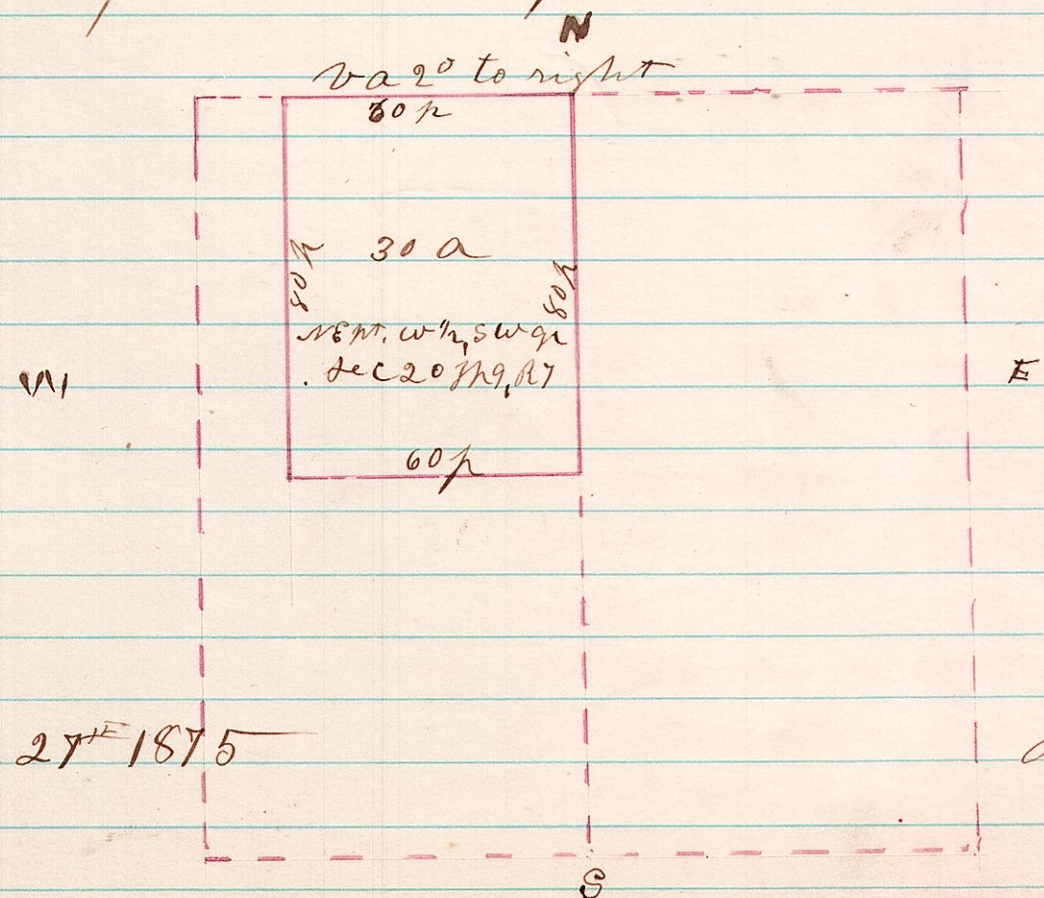 N
va 2° to right
60 p
30 a
80 p
80 p
NE pt. W ½, SW qr
Sec 20 Tp 9, R7
W
E
60 p
27th 1875
S